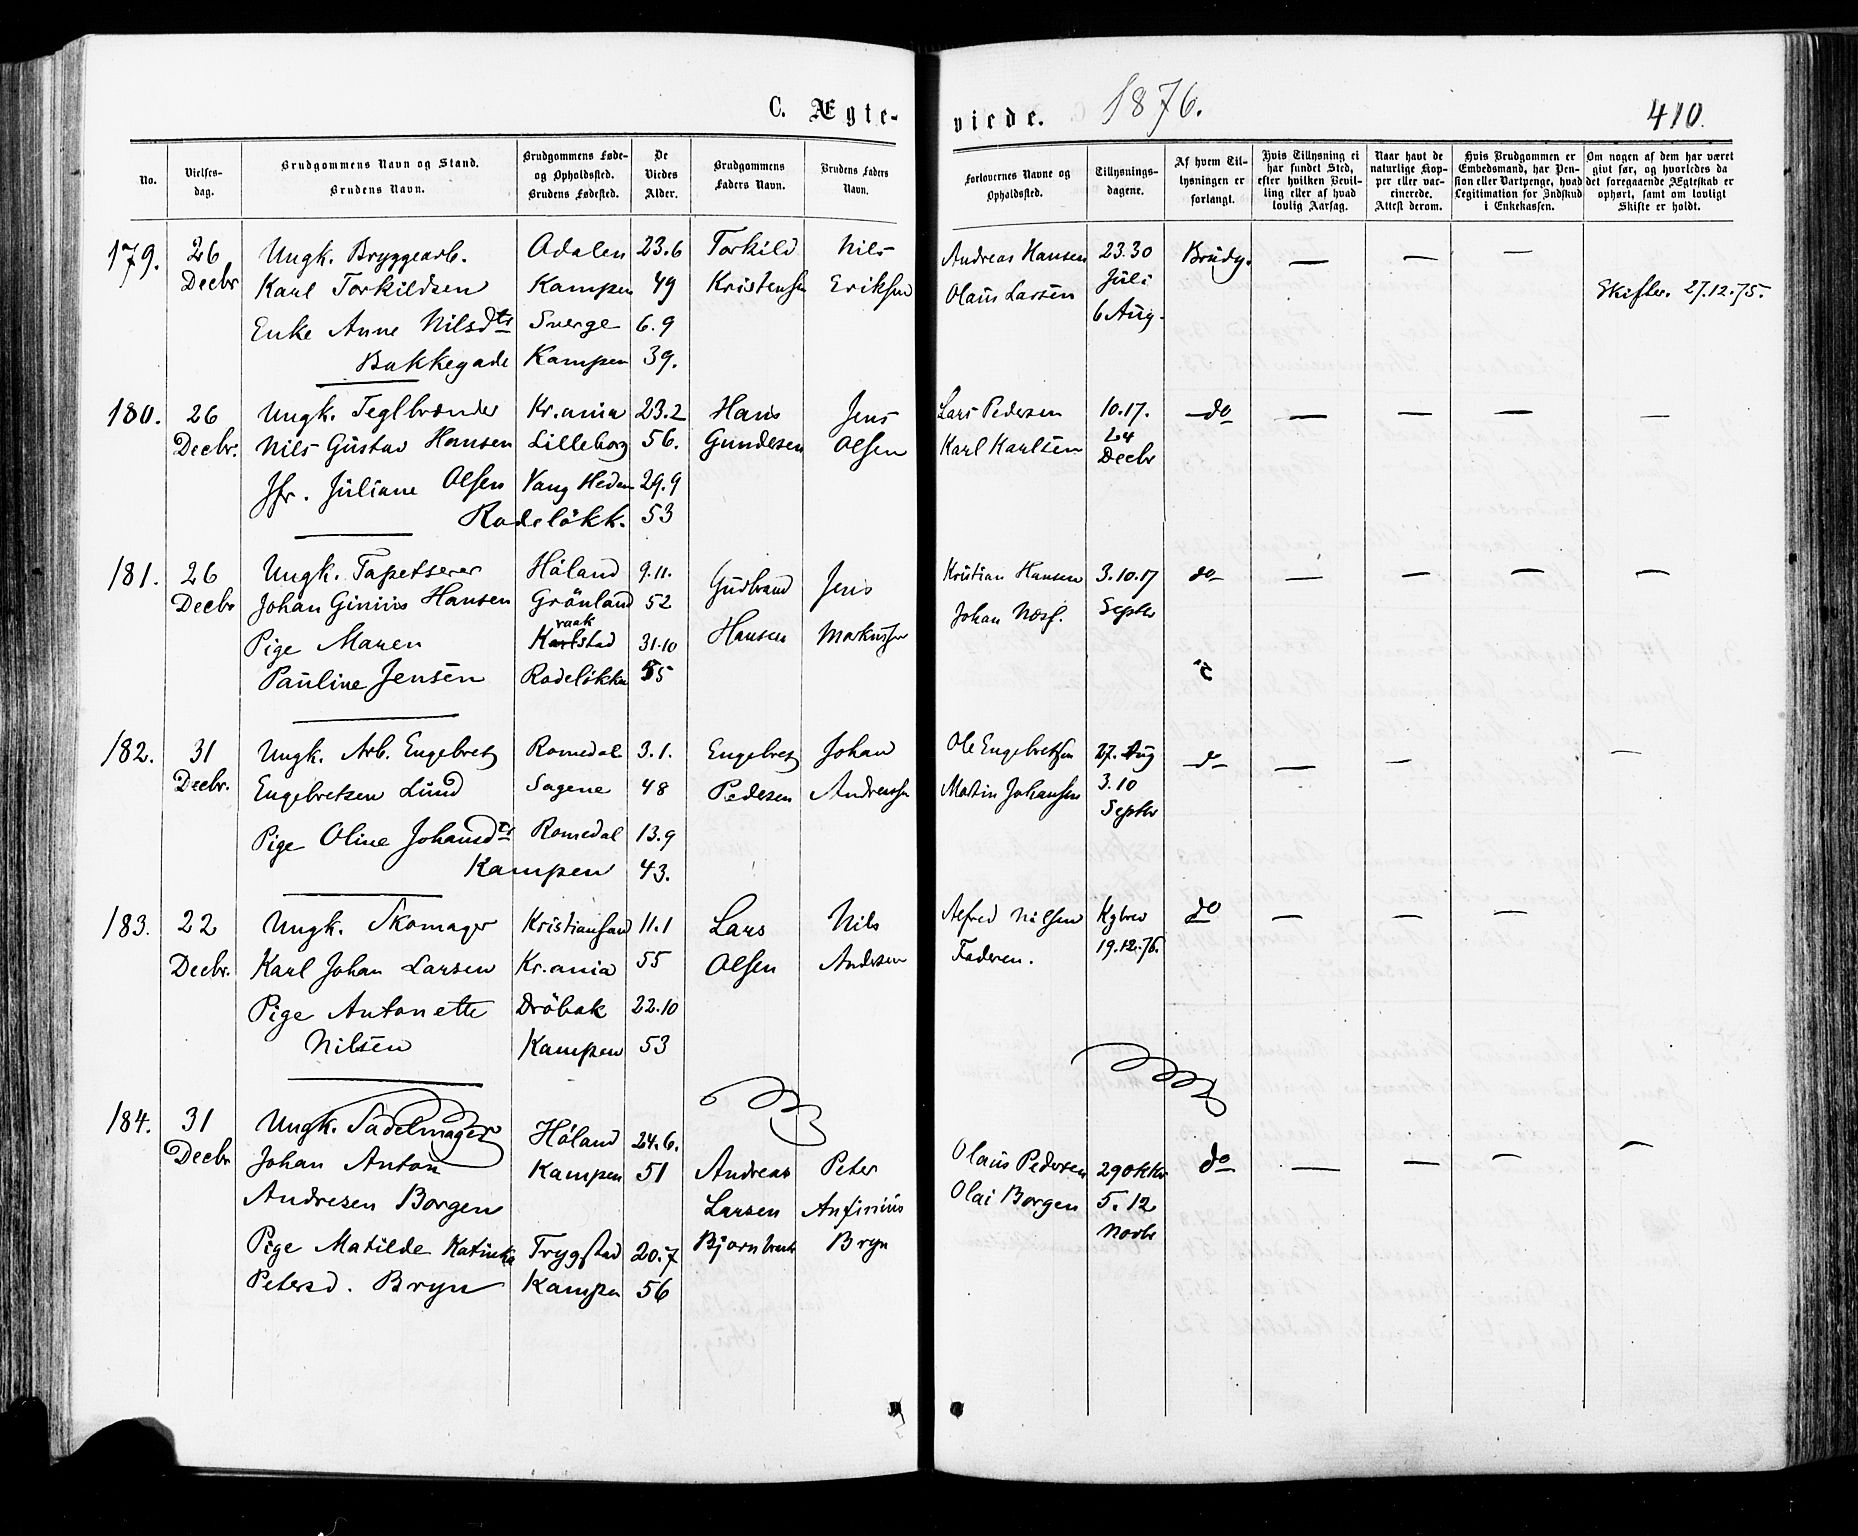 C. Ægte-
viede.
1876.
410.
No.
Vielses-
dag.
Brudgommens Navn og Stand.
Brudens Navn.
Brudgommens Føde-
og Opholdssted.
Brudens Fødested.
De
Viedes
Alder.
Brudgommens
Faders Navn.
Brudens Faders
Navn.
Forlovernes Navne og
Opholdssted.
Tillysnings-
dagene.
Af hvem Til-
lysningen er
forlangt.
Hvis Tillysning ei
har fundet Sted,
efter hvilken Bevil-
ling eller af hvad
lovlig Aarsag.
Naar havt de
naturlige Kop-
per eller vac-
cinerede.
Attest derom.
Hvis Brudgommen er
Embedsmand, har Pen-
sion eller Vartpenge, hvad
Legitimation for Indskud
i Enkekassen.
Om nogen af dem har været
givt før, og hvorledes da
det foregaaende Ægteskab er
ophørt, samt om lovligt
Skifte er holdt.
179. 26 Ungk. Bryggearb. Adalen 23.6 Torkild Nils Andreas Hansen 23.30 Brudg. — — —
Decbr Karl Torkildsen Kampen 49 Kristensen Eriksen Olaus Larsen Juli Skifter. 27.12.75.
Enke Anne Nilsdtr Sverge 6.9 6 Aug.
Bakkegade Kampen 39.
180. 26 Ungk. Teglbrænder Kr.ania 23.2 Hans Jens Lars Pedersen 10.17. do — — — —
Decbr. Nils Gustav Hansen Lilleborg 56. Gundesen Olsen Karl Karlsen 24
Decbr
Jfr. Juliane Olsen Vang Hedm 29.9
Rodeløkk. 53
181. 26 Ungk. Tapetserer Høland 9.11. Gudbrand Jens Kristian Hansen 3.10.17 do — — — —
Decbr Johan Ginius Hansen Grønland 52 Hansen Markussen Johan Næss. Septbr
raak
Pige Maren Karlstad 31.10
Pauline Jensen Rodeløkka 55
182. 31 Ungk. Arb. Engebret Romedal 3.1. Engebret Johan Ole Engebretsen 27. Aug d — — —
Decbr. Engebretsen Lund Sagene 48 Pedesen Andreassen Martin Johansen 3.10
Septbr
Pige Oline Johansdtr Romedal 13.9
Kampen 43.
183. 22 Ungk. Skomager Kristiansand 11.1 Lars Nils Alfred Nilsen Kgbrev do — — —
Decbr. Karl Johan Larsen Kr.ania 55 Olsen Andersen Faderen. 19.12.76.
Pige Antonette Drøbak 22.10
Nilsen Kampen 53
184. 31 Ungk. Sadelmager Høland 24.6.
Decbr Johan Anton Kampen 51 Andreas Peter Olaus Pedersen 29 Oktbr do — — — —
Andresen Borgen Larsen Anfinius Olai Borgen 5.12
Novbr
Pige Matilde Katinka Trygstad 20.7 Bryn
Petersd. Bryn Kampen 56